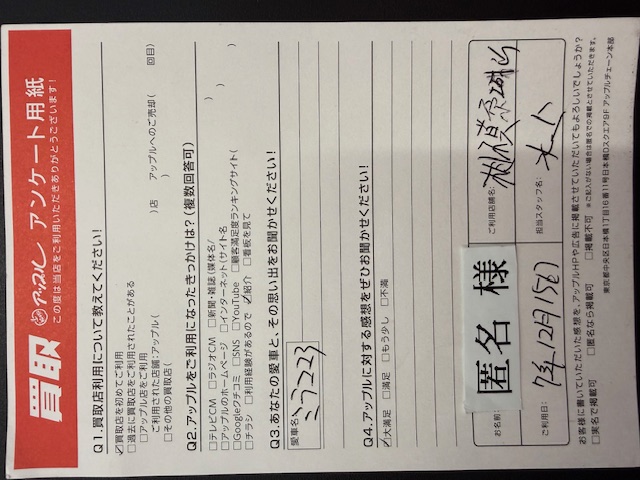 買取 アップル アンケート用紙
この度は当店をご利用いただきありがとうございます!
Q1.買取店利用について教えてください!
☑買取店を初めてご利用
□過去に買取店をご利用されたことがある
□アップル店をご利用
ご利用された店舗:アップル( )店 アップルへのご売却( 回目)
□その他の買取店( )
Q2.アップルをご利用になったきっかけは?(複数回答可)
□テレビCM □ラジオCM □新聞・雑誌(媒体名/ )
□アップルのホームページ □インターネット(サイト名 )
□Googleクチコミ □SNS □YouTube □顧客満足度ランキングサイト( )
□チラシ □利用経験があるので ☑紹介 □看板を見て
Q3.あなたの愛車と、その思い出をお聞かせください!
愛車名
Q4.アップルに対する感想をぜひお聞かせください!
☑大満足 □満足 □もう少し □不満
お名前: 匿名 様
ご利用店舗名:
ご利用日: 7年12月15日
担当スタッフ名:
お客様に書いていただいた感想を、アップルHPや広告に掲載させていただいてもよろしいでしょうか?
□実名で掲載可 □匿名なら掲載可 □掲載不可 ※ご記入がない場合は匿名での掲載とさせていただきます。
東京都中央区日本橋1丁目16番11号日本橋Dスクエア9F アップルチェーン本部